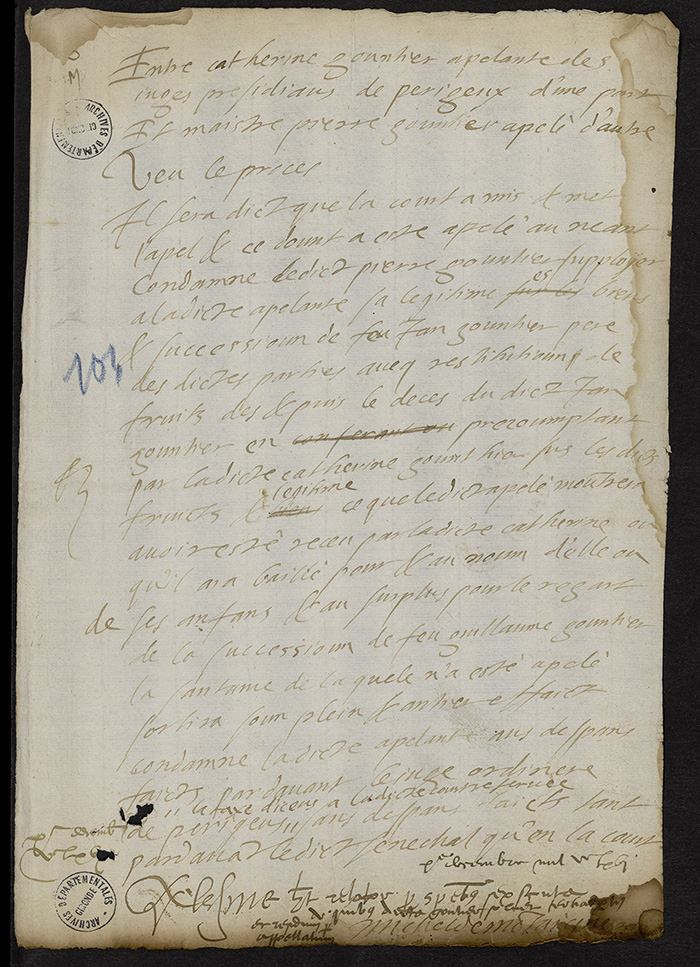 Entre catherine gountier apelante des
iuges presidiaus de perigeux d'une part
Et maistre pierre gountier apelé d'autre
Veu le proces
Il sera dict que la court a mis & met
l'apel & ce dount a esté apelé au neant
Condamne ledict pierre gountier suppleyer
a ladicte apelante sa legitime es biens
& successioun de feu Ian gountier pere
des dictes parties aveq restitutioun de
fruits des & puis le deces du dict Ian
gountier en precoumptant
par ladicte catherine gounthier sus les dicts
fruicts & legitime ce que ledict apelé moutrera
avoir esté receu par ladicte catherine ou
qu'il ara baillé pour & au noum d'elle ou
de ses anfans & au surplus pour le regart
de la successioun de feu guillaume gountier
la santance de laquele n'a esté apelé
sortira soun plein & antier effaict
condamne ladicte apelante aus despans
faicts pardavant le iuge ordinere
la taxe
de perigeus sans despans faicts tant
pardavat ledict senechal qu'en la court
103
ARCHIVES DÉPARTEMENTALES
GIRONDE
ARCHIVES DÉPARTEMENTALES
GIRONDE